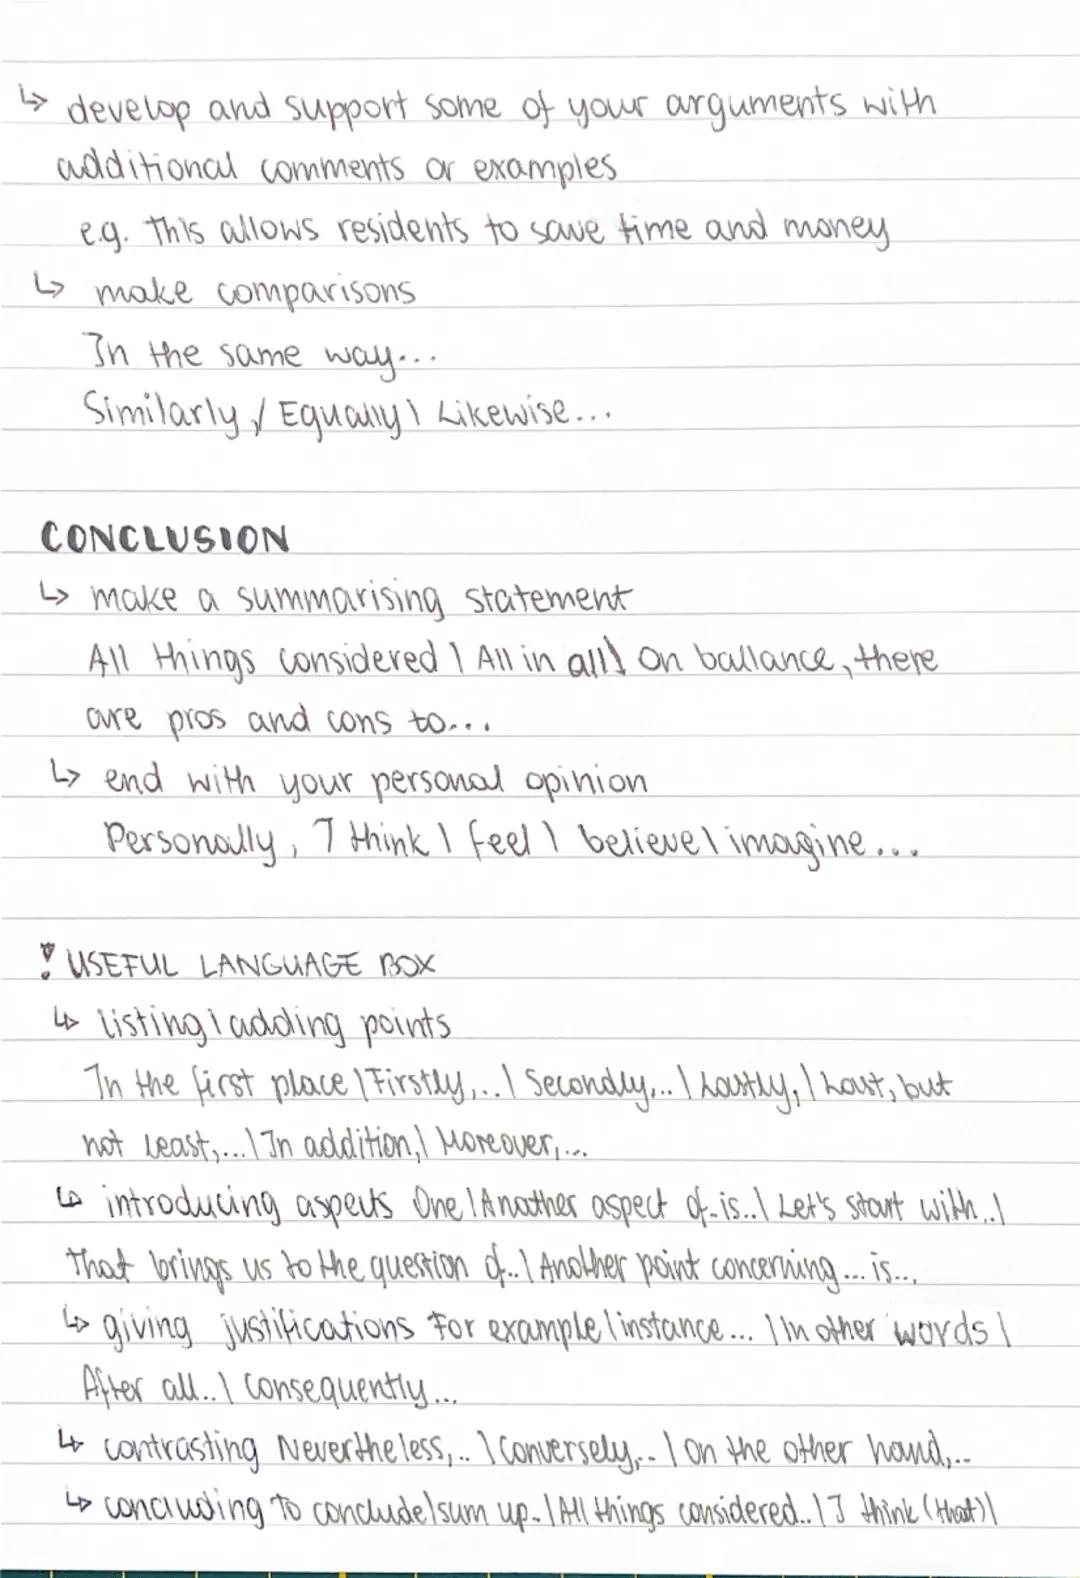 ↳ develop and support some of your arguments with
additional comments or examples
e.g. This allows residents to save time and money
↳ make comparisons
In the same way...
Similarly / Equally \ Likewise...
CONCLUSION
↳ make a summarising statement
All things considered \ All in all \ On ballance, there
are pros and cons to...
↳ end with your personal opinion
Personally, I think \ feel \ believe \ imagine...
! USEFUL LANGUAGE BOX
↳ listing \ adding points
In the first place \ Firstly,.. \ Secondly,.. \ Lastly, \ Last, but
not least,... \ In addition, \ Moreover,...
↳ introducing aspects One \ Another aspect of..is.. \ Let's start with.. \
That brings us to the question of.. \ Another point concerning... is...
↳ giving justifications For example \ instance... \ In other words \
After all.. \ Consequently...
↳ contrasting Nevertheless,.. \ Conversely,.. \ On the other hand,..
↳ concluding To conclude \ sum up.. \ All things considered.. \ I think (that) \